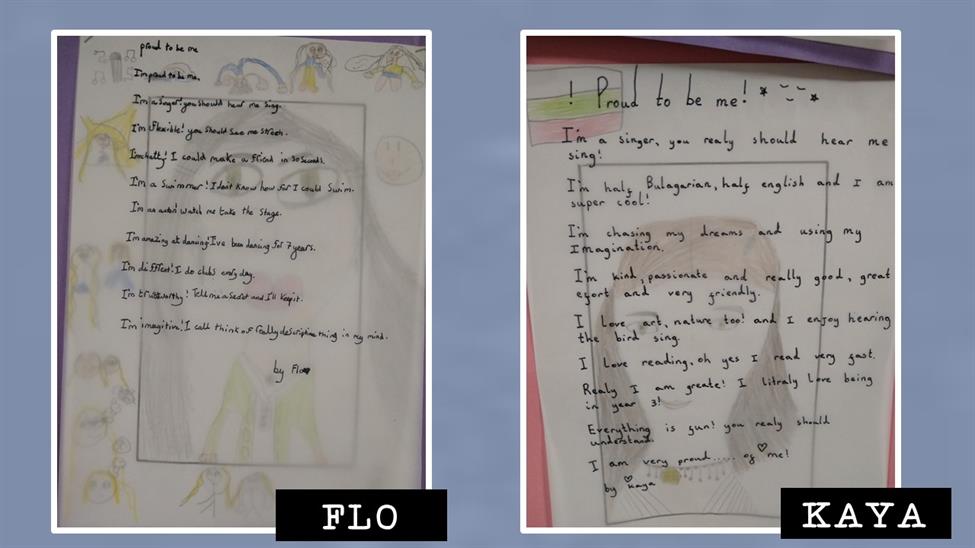 proud to be me
I'm proud to be me.
I'm a singer! you should hear me sing.
I'm flexible! you should see me stretch.
I'm chatty! I could make a friend in 30 seconds.
I'm a swimmer! I don't know how far I could swim.
I'm an actor! watch me take the stage.
I'm amazing at dancing! I've been dancing for 7 years.
I'm diffrent! I do clubs every day.
I'm trustworthy! Tell me a secret and I'll keep it.
I'm imagitive! I call think of really descriptive thing in my mind.
by Flo
FLO
! Proud to be me!
I'm a singer, you realy should hear me
sing!
I'm half Bulagarian, half english and I am
super cool!
I'm chasing my dreams and using my
Imagination.
I'm kind, passionate and really good, great
efort and very friendly.
I love art, nature too! and I enjoy hearing
the bird sing.
I love reading, oh yes I read very fast.
Realy I am greate! I litraly love being
in year 3!
Everything is fun! you realy should
understand.
I am very proud..... of me!
by Kaya
KAYA